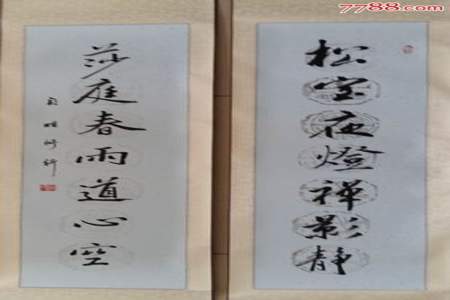 7788.com
松室夜燈禅影静
莎庭春雨道心空